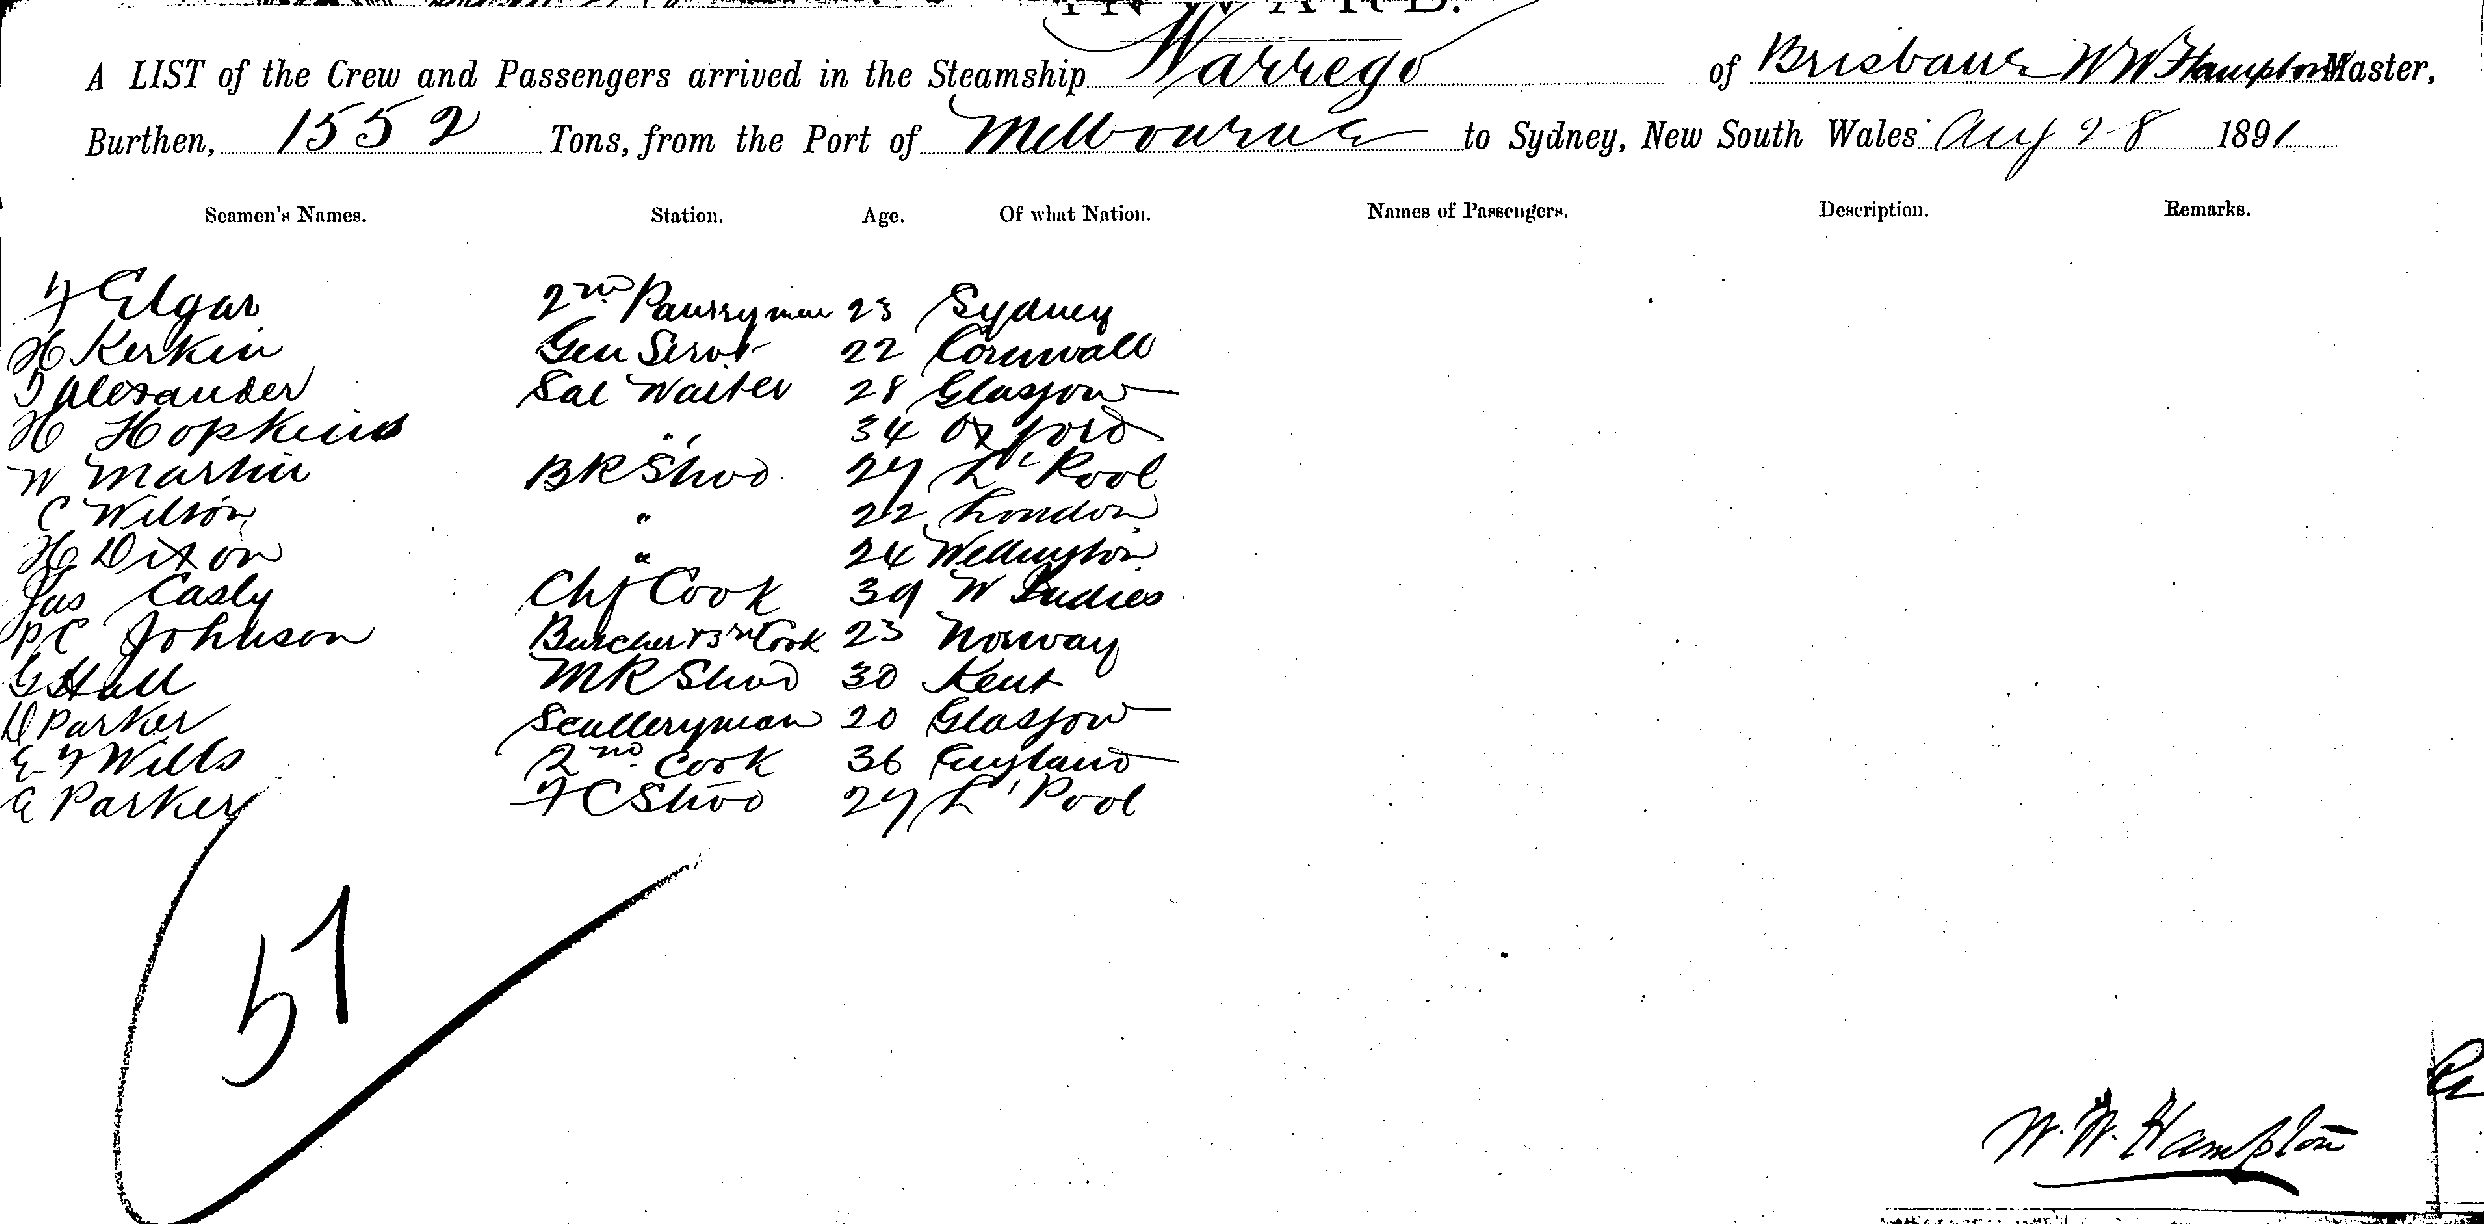 INWARD.
A LIST of the Crew and Passengers arrived in the Steamship Warrego of Brisbane W W Hampton Master,
Burthen, 1552 Tons, from the Port of Melbourne to Sydney, New South Wales Aug 28 1891
Seamen's Names. Station. Age. Of what Nation. Names of Passengers. Description. Remarks.
F Elgar 2nd Pantryman 23 Sydney
H Kerkin Gen Servt 22 Cornwall
J Alexander Sal Waiter 28 Glasgow
H Hopkins " 34 Oxford
W Martin BR Stwd 27 L'Pool
C Wilson " 22 London
H Dixon " 24 Wellington
Jas Casly Chf Cook 39 W Indies
P C Johnson Butcher & 3rd Cook 23 Norway
G Hall MR Stwd 30 Kent
D Parker Sculleryman 20 Glasgow
E F Wills 2nd Cook 36 England
E Parker FC Stwd 27 L'Pool
51
W. W. Hampton